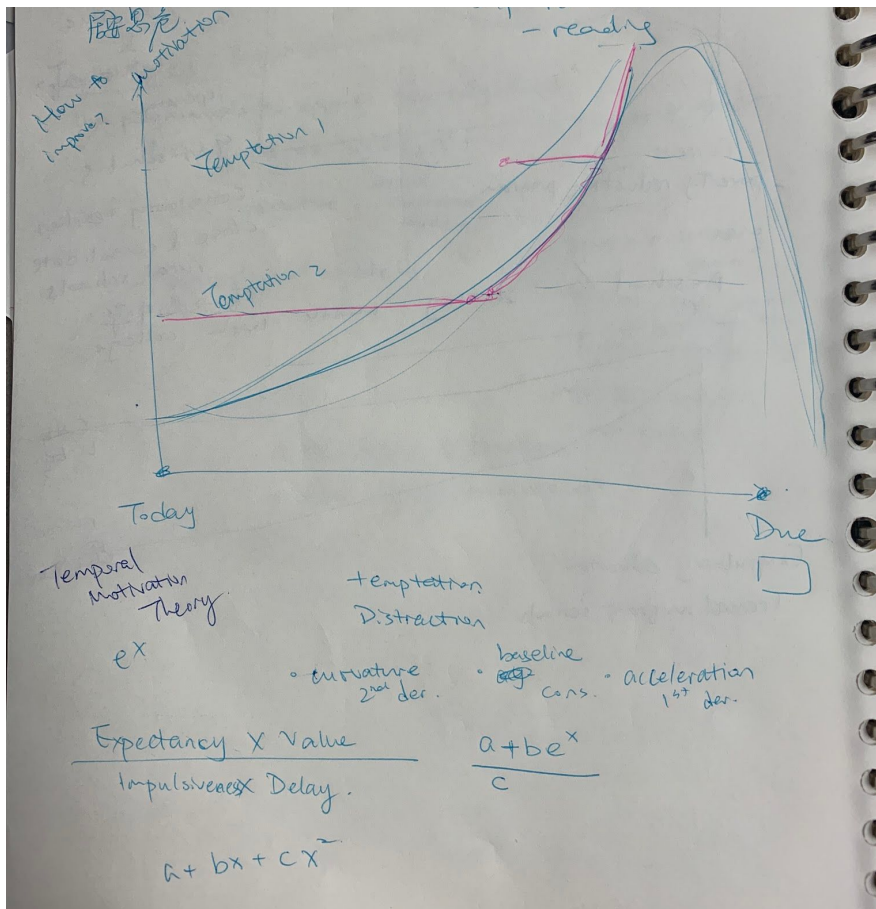 居安思危
- reading
How to
improve?
motivation
Temptation 1
Temptation 2
Today
Due
Temporal
Motivation
Theory.
temptation
Distraction
e^x
• curvature
2nd der.
• baseline
cons.
• acceleration
1st der.
Expectancy X Value
Impulsiveness X Delay.
a + be^x
c
a + bx + cx^2